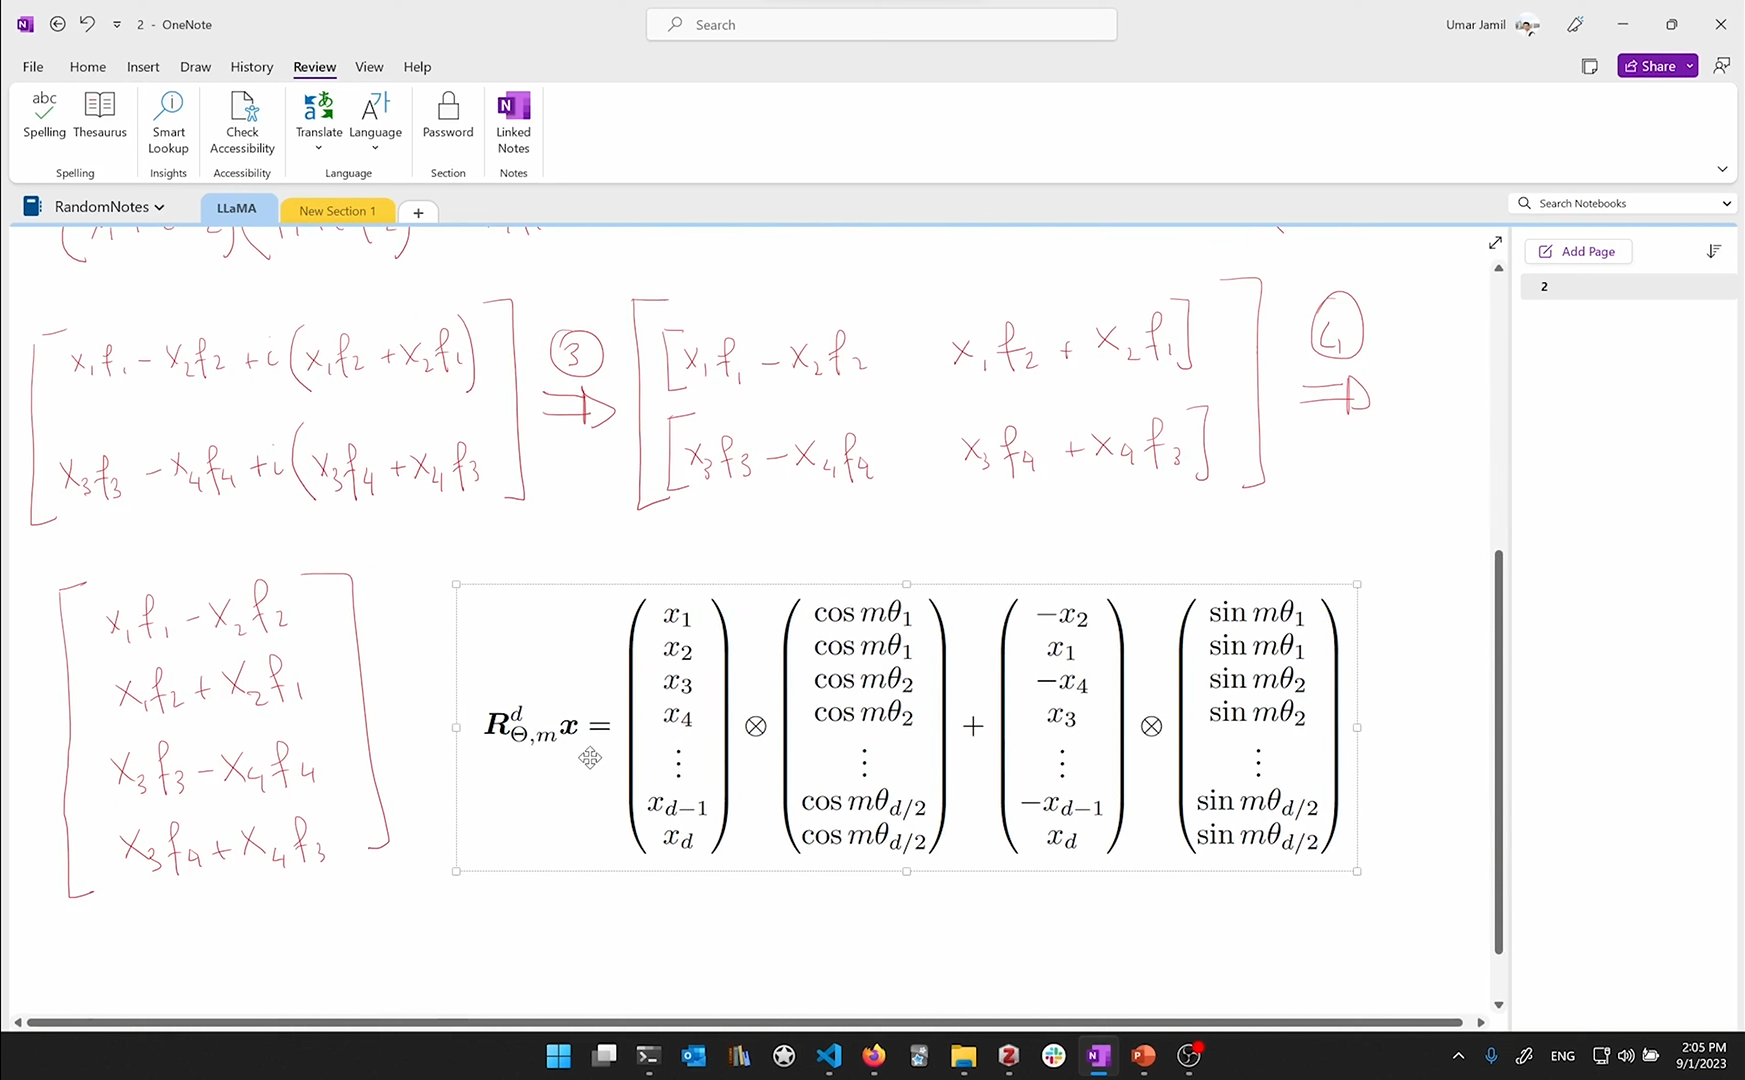 2 - OneNote
Search
Umar Jamil
File Home Insert Draw History Review View Help
Share
abc
Spelling
Thesaurus
Smart Lookup
Check Accessibility
Translate
Language
Password
Linked Notes
Spelling
Insights
Accessibility
Language
Section
Notes
RandomNotes
LLaMA
New Section 1
+
Search Notebooks
Add Page
2
x₁f₁ − x₂f₂ + i(x₁f₂ + x₂f₁)
x₃f₃ − x₄f₄ + i(x₃f₄ + x₄f₃
③ ⇒
[x₁f₁ − x₂f₂ x₁f₂ + x₂f₁]
[x₃f₃ − x₄f₄ x₃f₄ + x₄f₃]
④ ⇒
x₁f₁ − x₂f₂
x₁f₂ + x₂f₁
x₃f₃ − x₄f₄
x₃f₄ + x₄f₃
R^d_{Θ,m} x = (x₁ x₂ x₃ x₄ ⋮ x_{d−1} x_d) ⊗ (cos mθ₁ cos mθ₁ cos mθ₂ cos mθ₂ ⋮ cos mθ_{d/2} cos mθ_{d/2}) + (−x₂ x₁ −x₄ x₃ ⋮ −x_{d−1} x_d) ⊗ (sin mθ₁ sin mθ₁ sin mθ₂ sin mθ₂ ⋮ sin mθ_{d/2} sin mθ_{d/2})
ENG
2:05 PM
9/1/2023